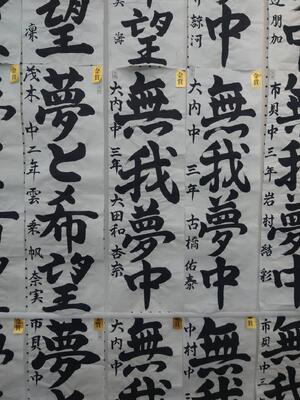 望
凜
望
海
中
諒河
朋加
金賞
夢と希望
茂木中二年雲乗帆奈実
金賞
無我夢中
大内中三年大田和杏奈
金賞
無我夢中
大内中三年古橋佑泰
金賞
市貝中三年岩村結彩
夢
市貝中
無我
大内中
無我
中村中
市貝中三